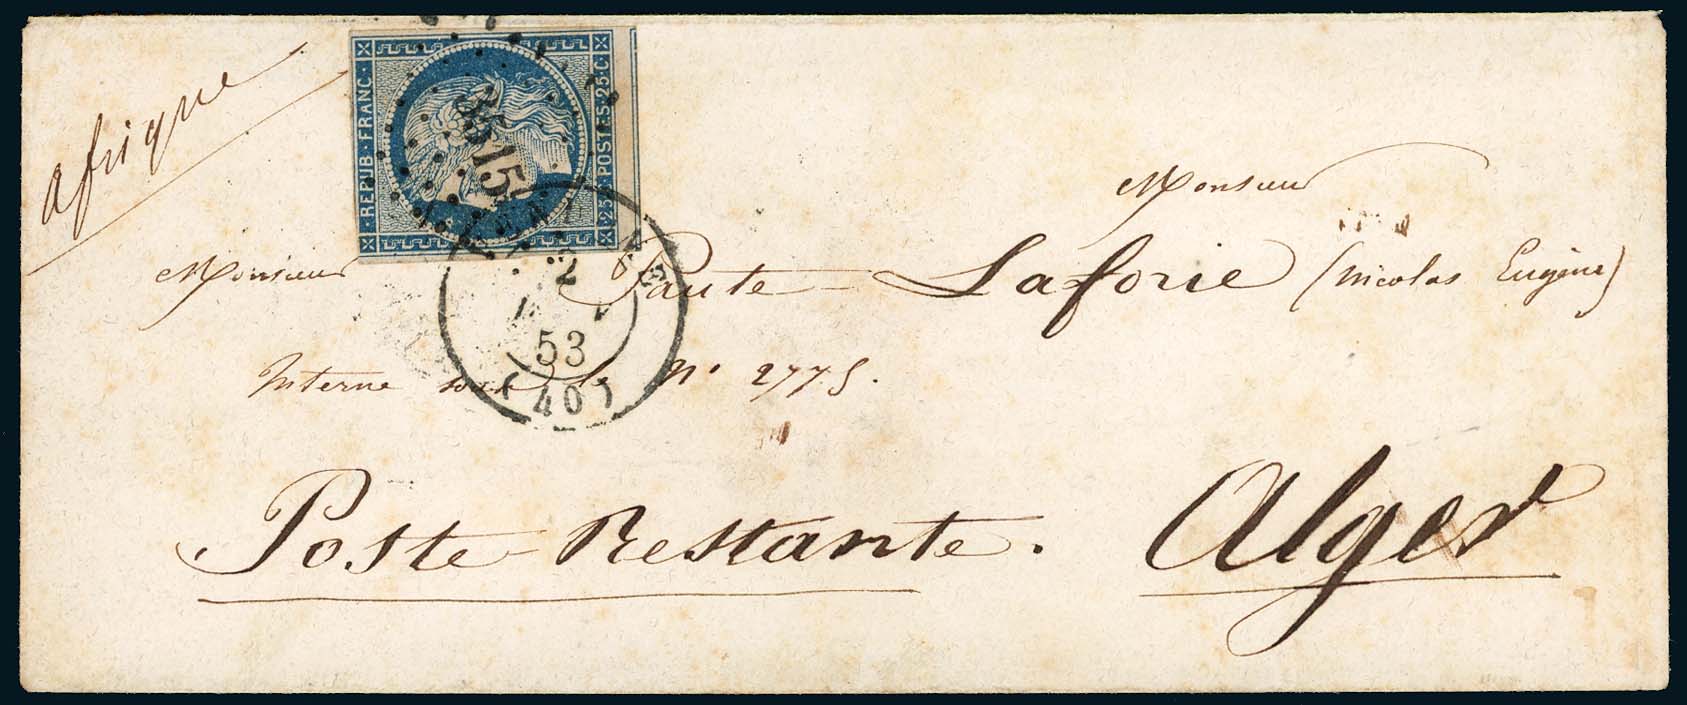 afrique
REPUB·FRANC·
25·POSTES·25C
3515
2
53
(40)
Monsieur
Monsieur
Paute-Laforie (Nicolas Eugène)
Interne sous le N° 2775.
Poste-Restante. Alger